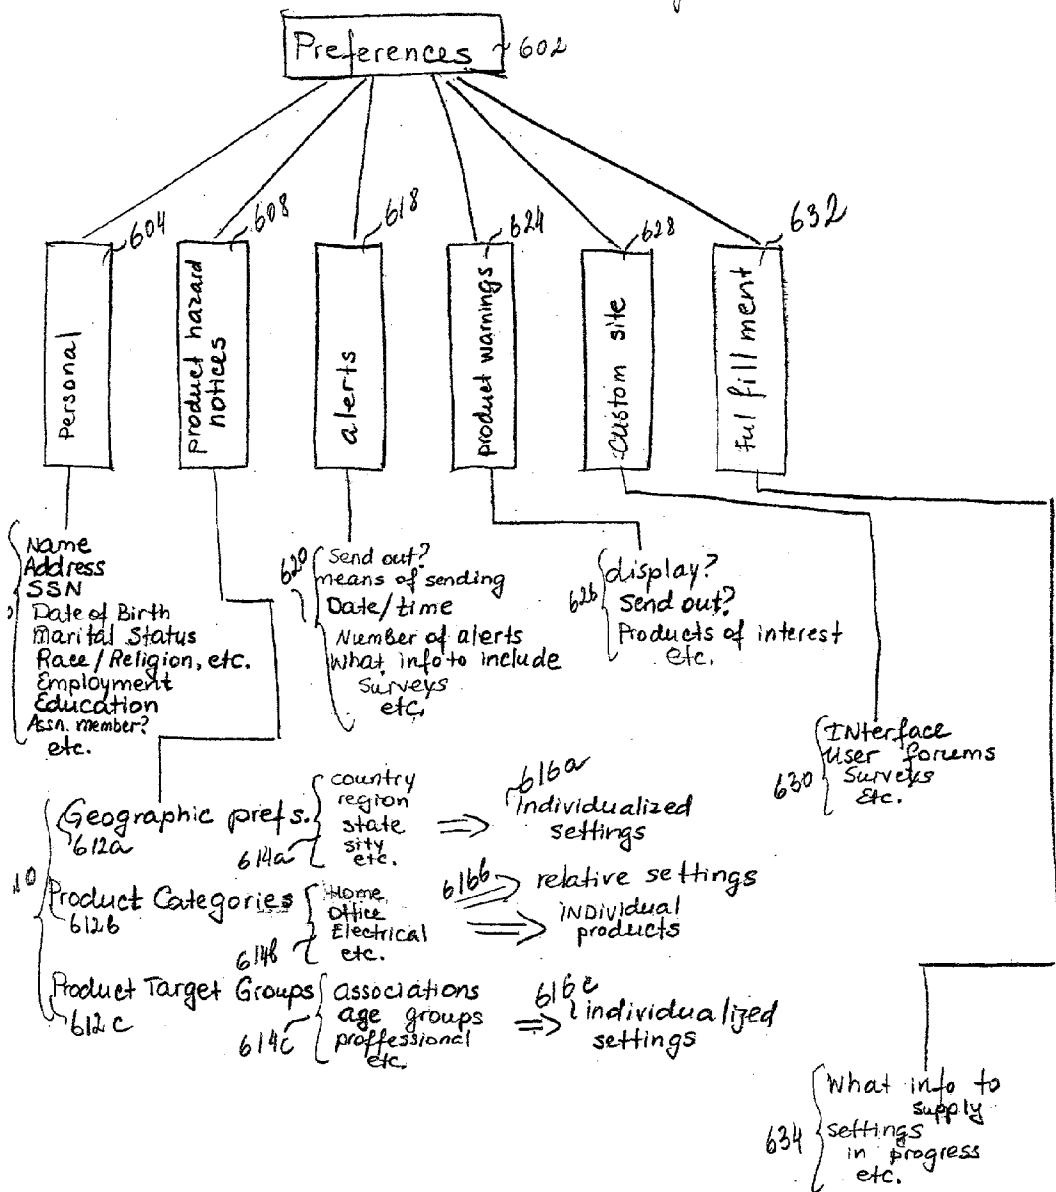 Preferences 602
604
608
618
624
628
632
Personal
product hazard
notices
alerts
product warnings
Custom site
fulfillment
Name
Address
SSN
Date of Birth
Marital Status
Race / Religion, etc.
Employment
Education
Assn. member?
etc.
620
Send out?
means of sending
Date/time
Number of alerts
What info to include
Surveys
etc.
626
display?
Send out?
Products of interest
etc.
630
INterface
User forums
Surveys
Etc.
10
Geographic prefs.
612a
614a
country
region
state
sity
etc.
616a
individualized
settings
Product Categories
612b
614b
Home
Office
Electrical
etc.
616b
relative settings
INDIVIDUAL
products
Product Target Groups
612c
614c
associations
age groups
proffessional
etc.
616c
individualized
settings
634
What info to
supply
settings
in progress
etc.